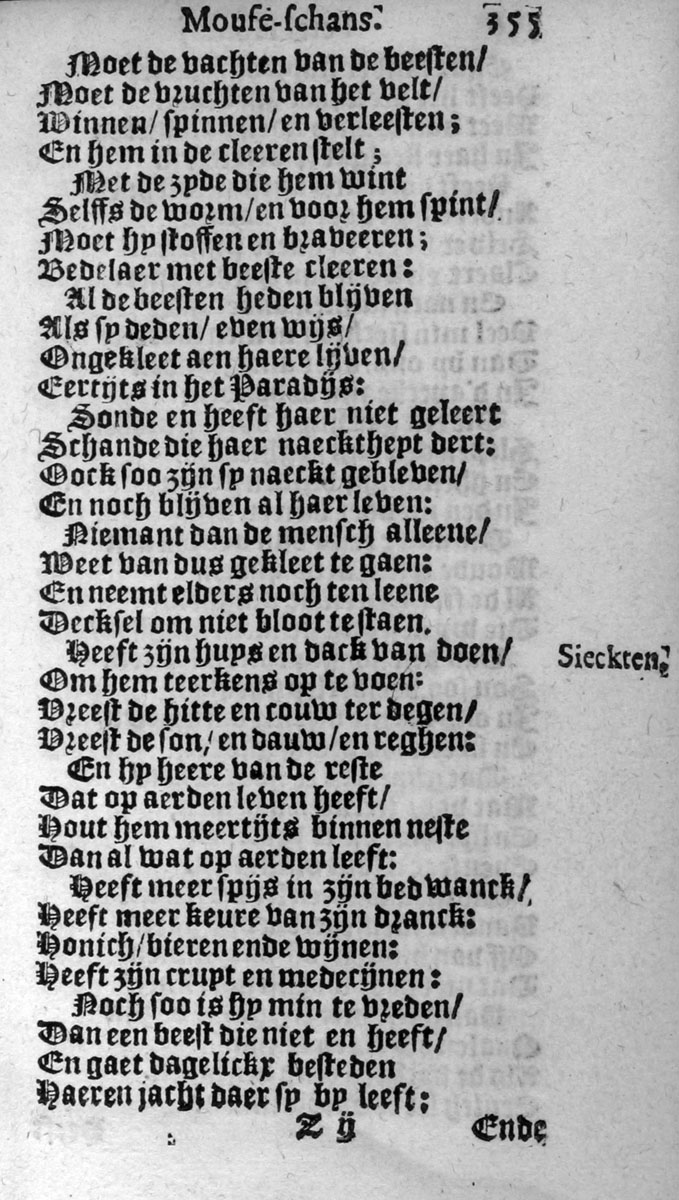 Mouse-schans. 355
Moet de vachten van de beesten/
Moet de vruchten van het velt/
Winnen/ spinnen/ en verleesten;
En hem in de cleeren stelt;
Met de zyde die hem wint
Selffs de worm/ en voor hem spint/
Moet hy stoffen en braveeren;
Bedelaer met beeste cleeren:
Al de beesten heden blijven
Als sy deden/ even wijs/
Ongekleet aen haere lijven/
Eertijts in het Paradijs:
Sonde en heeft haer niet geleert
Schande die haer naeckthept dert:
Oock soo zijn sy naeckt gebleven/
En noch blijven al haer leven:
Niemant dan de mensch alleene/
Weet van dus gekleet te gaen:
En neemt elders noch ten leene
Decksel om niet bloot te staen.
Heeft zijn huys en dack van doen/
Sieckten.
Om hem teerkens op te voen:
Vreest de hitte en couw ter degen/
Vreest de son/ en dauw/ en reghen:
En hy heere van de reste
Dat op aerden leven heeft/
Hout hem meertijts binnen neste
Dan al wat op aerden leeft:
Heeft meer spijs in zijn bedwanck/
Heeft meer keure van zijn dranck:
Honich/ bieren ende wijnen:
Heeft zijn cruyt en medecijnen:
Noch soo is hy min te vreden/
Dan een beest die niet en heeft/
En gaet dagelickx besteden
Haeren jacht daer sy by leeft:
Z ij Ende